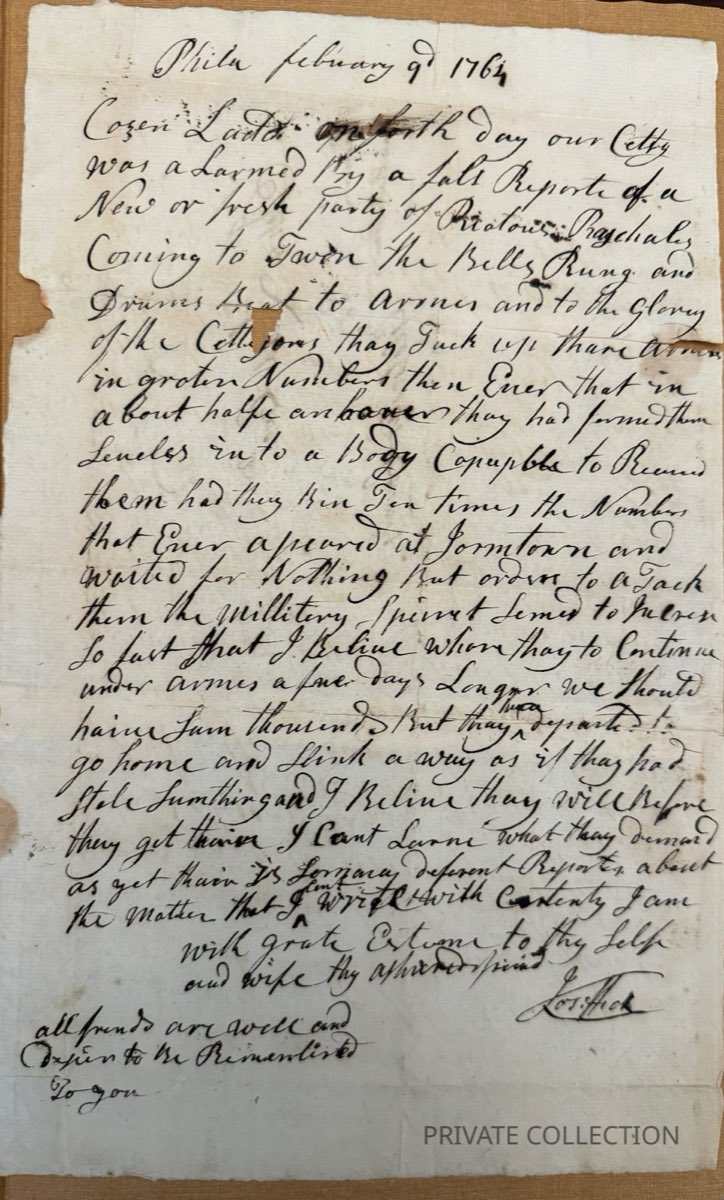 Phila febuary 9d 1764
Cozen Ladd on forth day our Citty
was a Larmed By a fals Reporte of a
New or fresh party of Riatous Raschales
Coming to Town the Bells Rung and
Drums Beat to Armes and to the Glorey
of the Cittysons thay Tuck up thare Armes
in grater Numbers then Ever that in
about halfe an hower thay had formed them
Selveses in to a Body Capapble to Receved
them had they Bin Ten times the Numbers
that Ever apeared at Jormtown and
waited for Nothing But orders to a Tack
them the Millitery Spirret Semed to Incres
So fast that I Belive whare thay to Continue
under Armes a fuer days Longer we Should
haive Sum thousends But thay have departed to
go home and Slink a way as if thay had
Stole Sumthing and I Belive thay will Before
they get thair I Cant Larne what thay demand
as yet thair Is So many deferent Reports about
the Mather that I cant write with Certenty I am
with grate Esteme to thy Self
and wife thy friend
Jos:
all frends are well and
Desier to Be Rimembred
To you
PRIVATE COLLECTION